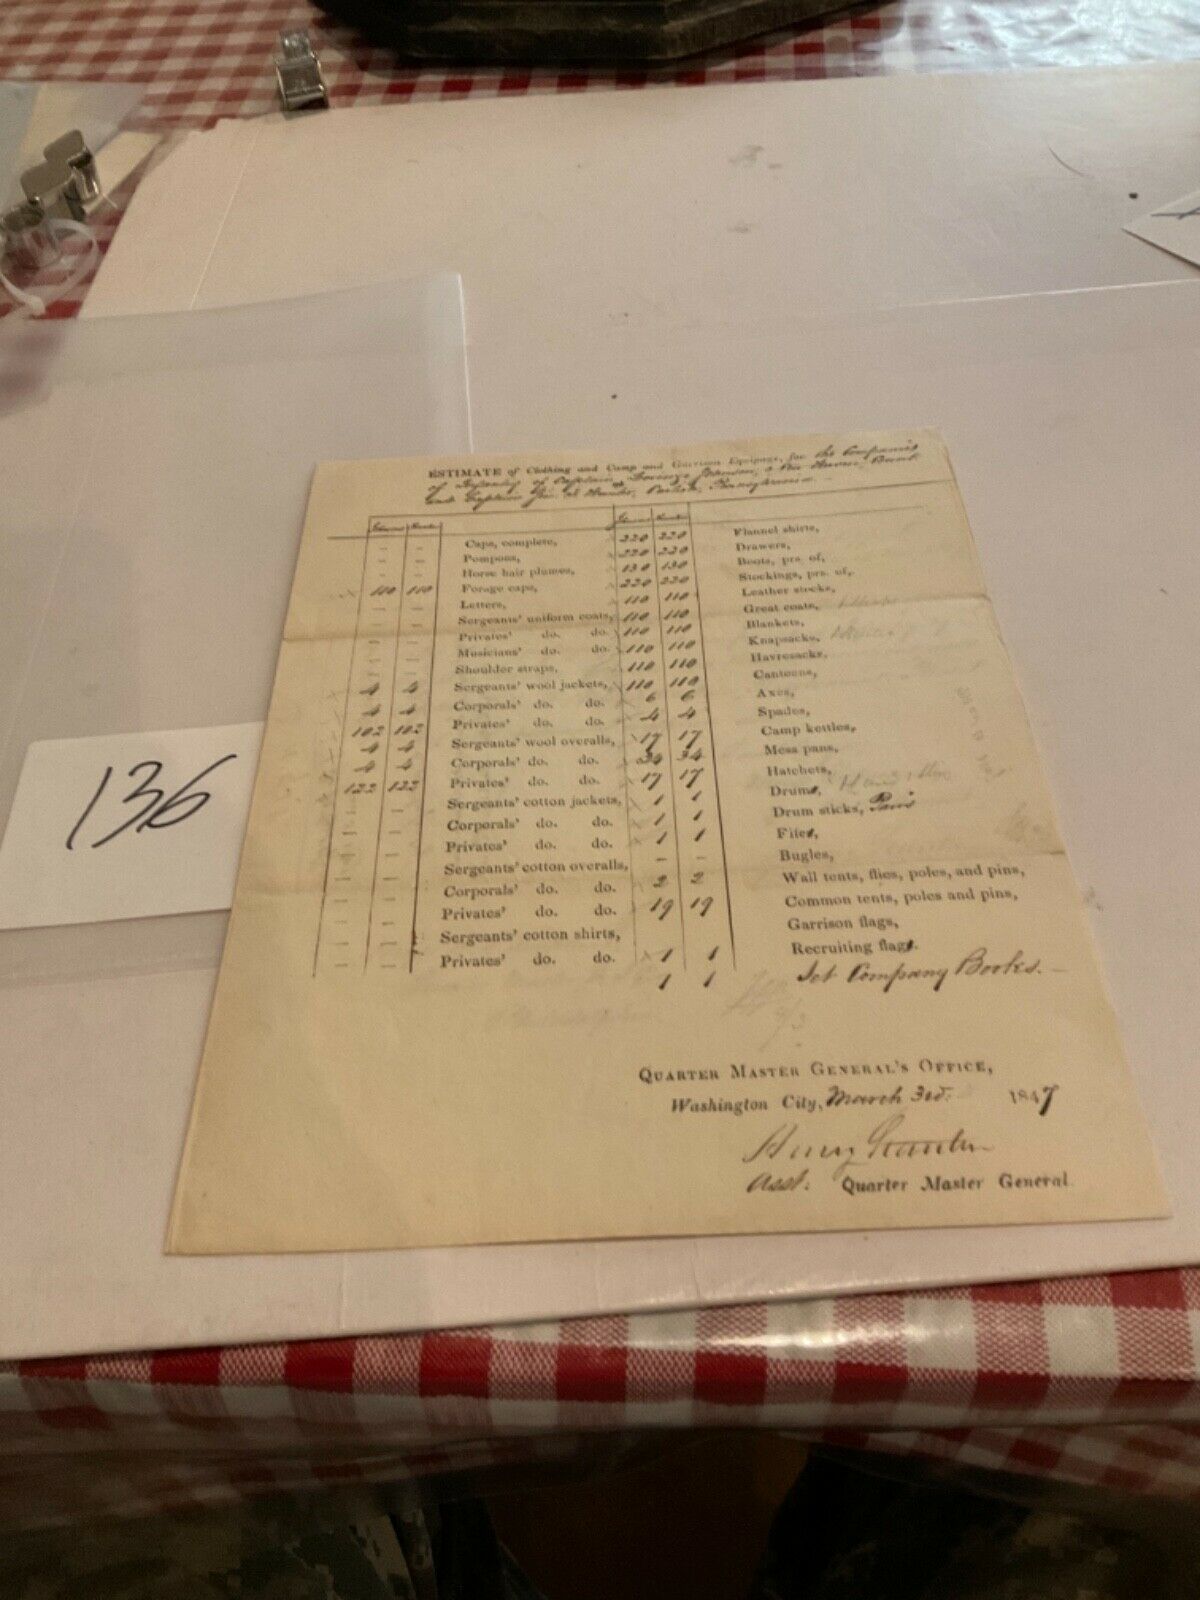 ESTIMATE of Clothing and Camp and Garrison Equipage, for the Companies
of Infantry of Captain Johnson,
and Captain Pennsylvania. —
– – Caps, complete,
– – Pompons,
– – Horse hair plumes,
110 110 Forage caps,
– – Letters,
– – Sergeants' uniform coats,
– – Privates' do. do.
– – Musicians' do. do.
– – Shoulder straps,
4 4 Sergeants' wool jackets,
4 4 Corporals' do. do.
102 102 Privates' do. do.
4 4 Sergeants' wool overalls,
4 4 Corporals' do. do.
122 122 Privates' do. do.
– – Sergeants' cotton jackets,
– – Corporals' do. do.
– – Privates' do. do.
– – Sergeants' cotton overalls,
– – Corporals' do. do.
– – Privates' do. do.
– – Sergeants' cotton shirts,
– – Privates' do. do.
220 220 Flannel shirts,
220 220 Drawers,
130 130 Boots, prs. of,
220 220 Stockings, prs. of,
110 110 Leather stocks,
110 110 Great coats,
110 110 Blankets,
110 110 Knapsacks,
110 110 Havresacks,
110 110 Canteens,
6 6 Axes,
4 4 Spades,
17 17 Camp kettles,
34 34 Mess pans,
17 17 Hatchets,
1 1 Drums,
1 1 Drum sticks, Pairs
1 1 Fifes,
– – Bugles,
2 2 Wall tents, flies, poles, and pins,
19 19 Common tents, poles and pins,
Garrison flags,
1 1 Recruiting flags.
1 1 Set Company Books. —
QUARTER MASTER GENERAL'S OFFICE,
Washington City, March 3rd. 1847
Henry Stanton
Asst. Quarter Master General.
136